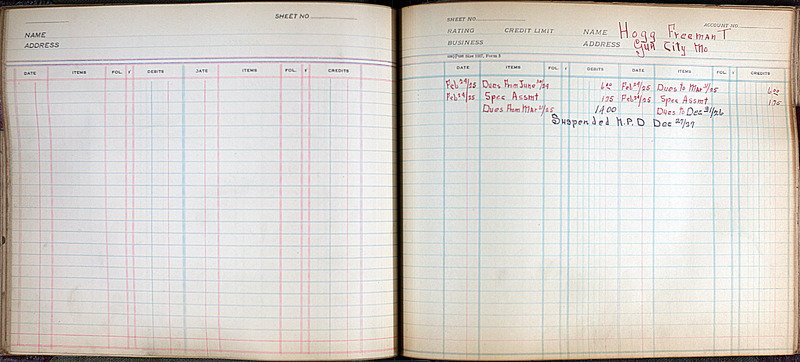 SHEET NO.
NAME
ADDRESS
DATE ITEMS FOL. ✓ DEBITS DATE ITEMS FOL. ✓ CREDITS
SHEET NO.
ACCOUNT NO.
RATING CREDIT LIMIT NAME Hogg Freeman T
BUSINESS ADDRESS Gun City Mo
DATE ITEMS FOL. ✓ DEBITS DATE ITEMS FOL. ✓ CREDITS
Feb 24/25 Dues From June 30/24 6.00 Feb 24/25 Dues to Mar 31/25 6.00
Feb 24/25 Spec Assmt 1.75 Feb 24/25 Spec Assmt 1.75
Dues From Mar 31/25 14.00 Dues to Dec 31/26
Suspended N.P.D Dec 27/27